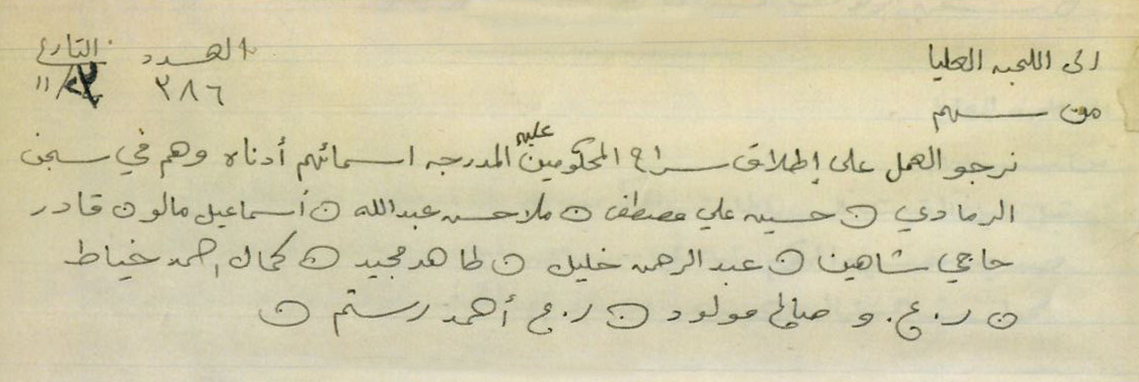 الى اللجنه العليا العدد التاريخ
من سهم ٣٨٦ /١١
نرجو العمل على إطلاق سراح المحكومين عليه المدرجه اسمائهم أدناه وهم في سجن
الرمادي ن حسين علي مصطفى ن ملا حسن عبدالله ن أسماعيل مالو ن قادر
حاجي شاهين ن عبد الرحمن خليل ن طاهر مجيد ن كمال احمد خياط
ن ر.ع. و صالح مولود ن ر.ع أحمد رستم ن